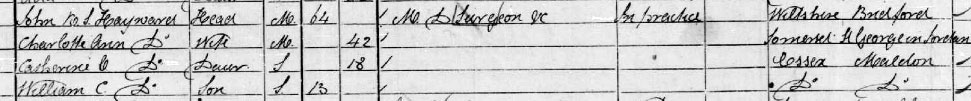 John K. S. Hayward Head M 64 M D Surgeon &c In practice Wiltshire Bradford
Charlotte Ann Do Wife M 42 Somerset St George in Gordan
Catherine C Do Daur S 18 Essex Maldon
William C. Do Son S 13 Do Do